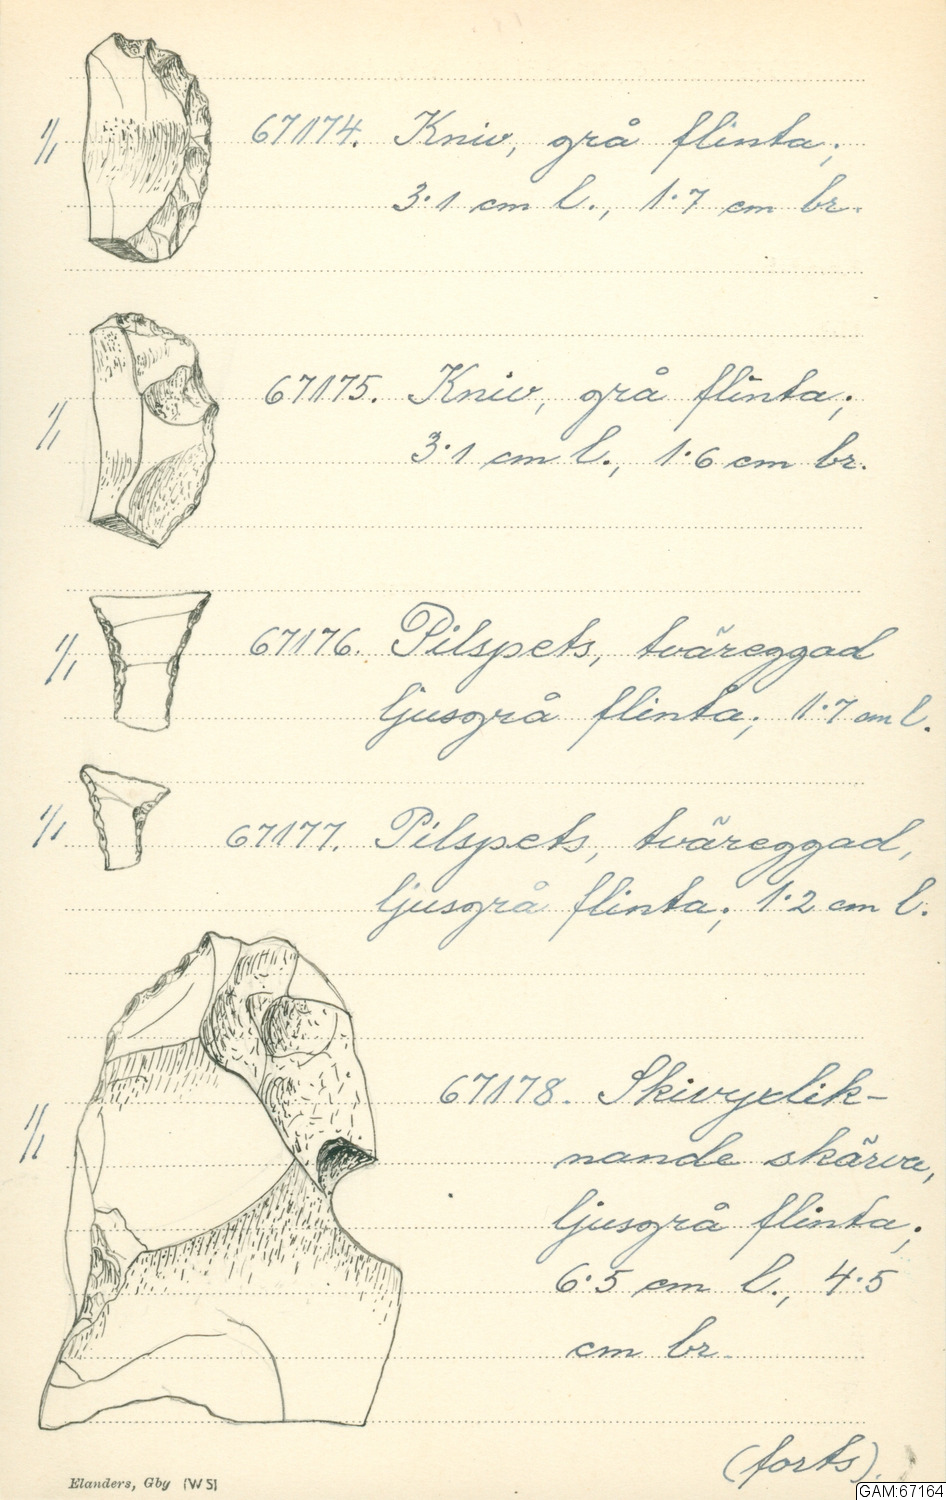 1/1 67174. Kniv, grå flinta;
3·1 cm l., 1·7 cm br.
1/1 67175. Kniv, grå flinta;
3·1 cm l., 1·6 cm br.
1/1 67176. Pilspets, tväreggad
ljusgrå flinta; 1·7 cm l.
1/1 67177. Pilspets, tväreggad,
ljusgrå flinta; 1·2 cm l.
1/1 67178. Skivyxlik-
nande skärva,
ljusgrå flinta;
6·5 cm l., 4·5
cm br.
(forts).
Elanders, Gby (WS)
GAM:67164